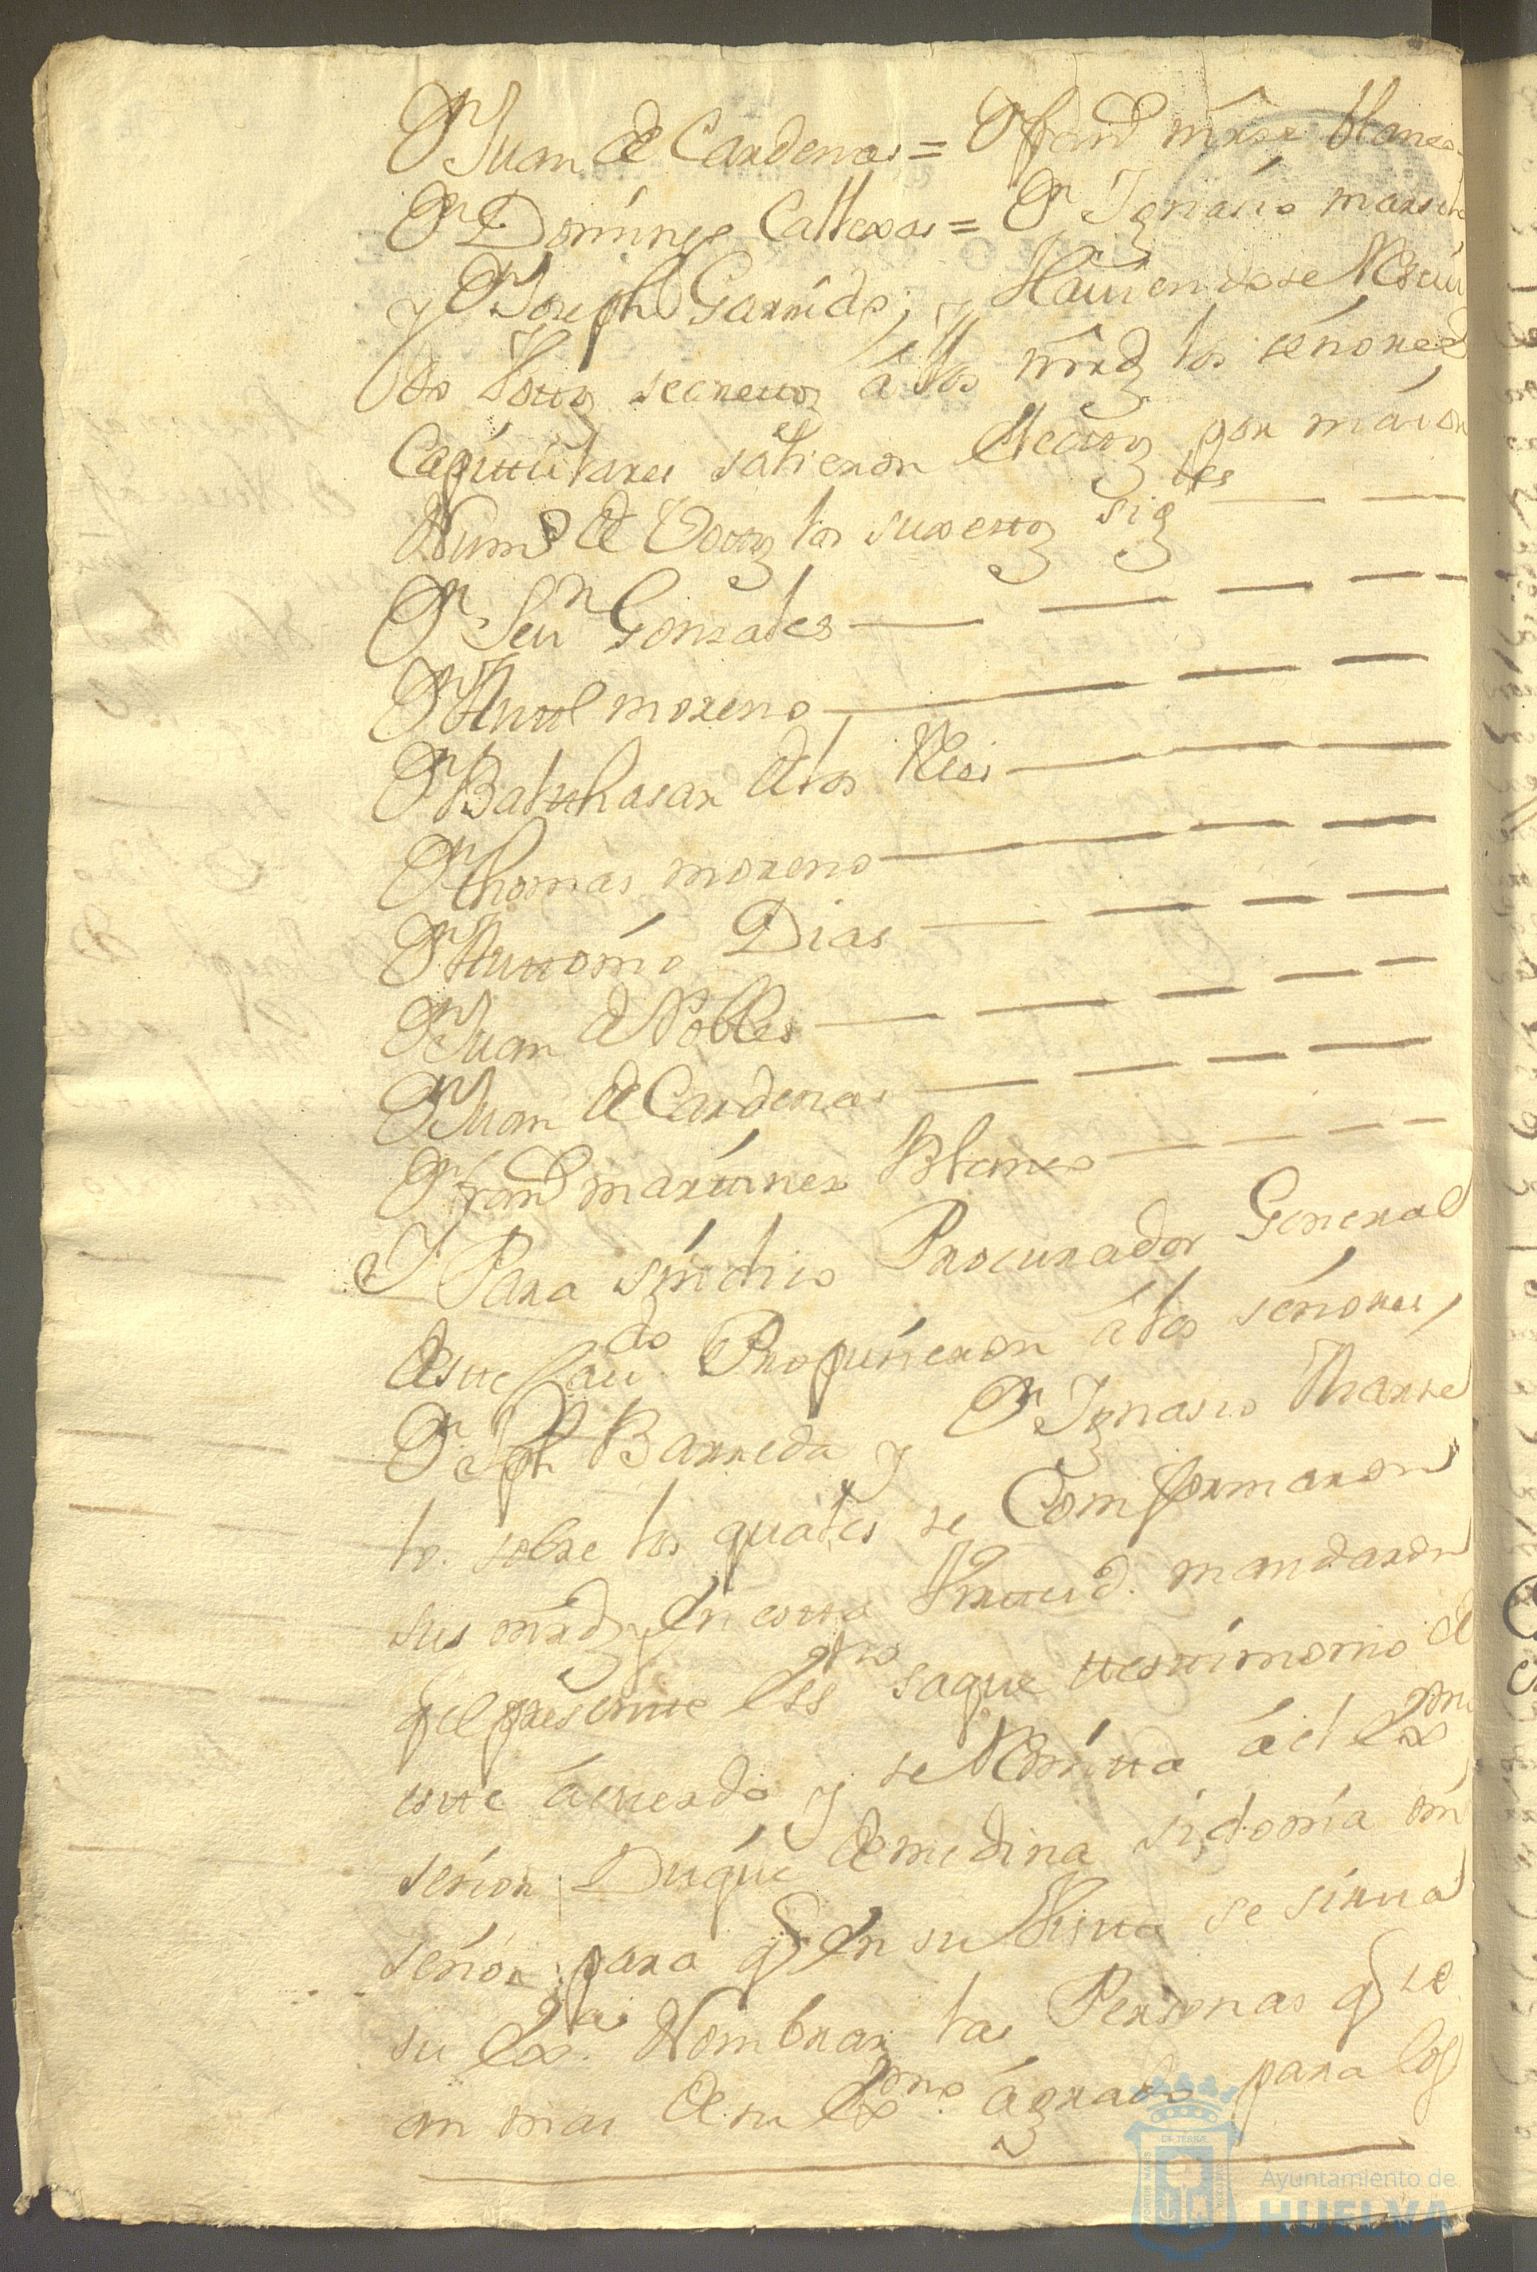 Dn Juan de Cardenas = Dn franco mrnz blanco
Dn Domingo Callexas = Dn Ignasio marselo
y Dn Joseph Garrido; y Hauiendose Resiui
do Vottos secrettos á los mrds los señores
Capittulares salieron Electtos por maior
Numo de Vottos los suxettos sigtes
Dn Seun Gonzales
Dn Anttl moreno
Dn Balthasar de los Reies
Dn thomas moreno
Dn Anttonio Dias
Dn Juan de Robles
Dn Juan de Cardenas
Dn franco martines Blanco
Y Para sindico Procurador General
deste Caudo Propusieron a los señores,
Dn Jph Barreda y Dn Ignasio Marse
lo. sobre los quales se Comformaron
sus mrds y En esta Virttud. mandaron
q el presentte Essno saque ttesttimonio de
estte ácuerdo y se Remitta ael Exmo
señor Duque de medina sidonia mi
señor; para q En su Vistta se sirua
su Exa. Nombrar las Personas q se
an mas de su Exmo ágrado para los
Ayuntamiento de
HUELVA